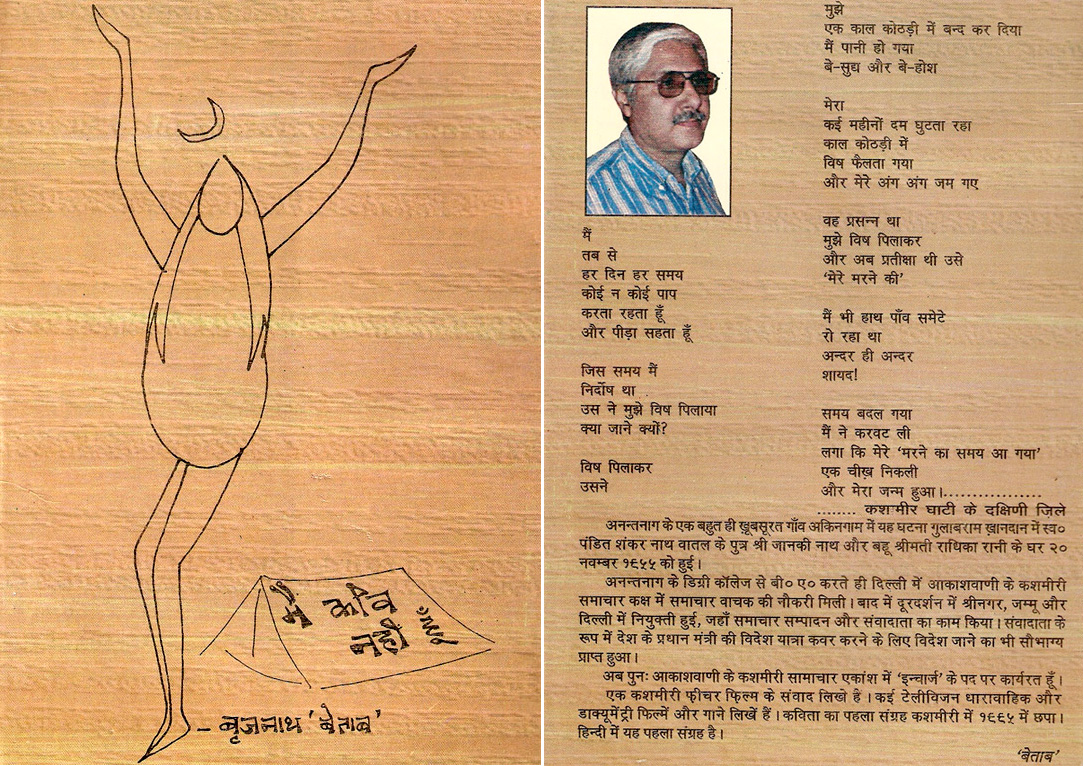 मैं कवि
नहीं हूँ
- बृजनाथ 'बेताब'
मैं
तब से
हर दिन हर समय
कोई न कोई पाप
करता रहता हूँ
और पीड़ा सहता हूँ
जिस समय मैं
निर्दोष था
उस ने मुझे विष पिलाया
क्या जाने क्यों?
विष पिलाकर
उसने
मुझे
एक काल कोठड़ी में बन्द कर दिया
मैं पानी हो गया
बे-सुद्य और बे-होश
मेरा
कई महीनों दम घुटता रहा
काल कोठड़ी में
विष फैलता गया
और मेरे अंग अंग जम गए
वह प्रसन्न था
मुझे विष पिलाकर
और अब प्रतीक्षा थी उसे
'मेरे मरने की'
मैं भी हाथ पाँव समेटे
रो रहा था
अन्दर ही अन्दर
शायद!
समय बदल गया
मैं ने करवट ली
लगा कि मेरे 'मरने का समय आ गया'
एक चीख़ निकली
और मेरा जन्म हुआ।.................
........ कश्मीर घाटी के दक्षिणी ज़िले
अनन्तनाग के एक बहुत ही ख़ूबसूरत गाँव अकिनगाम में यह घटना गुलाबराम ख़ानदान में स्व०
पंडित शंकर नाथ वातल के पुत्र श्री जानकी नाथ और बहू श्रीमती राधिका रानी के घर २०
नवम्बर १९५५ को हुई।
अनन्तनाग के डिग्री कॉलेज से बी० ए० करते ही दिल्ली में आकाशवाणी के कशमीरी
समाचार कक्ष में समाचार वाचक की नौकरी मिली। बाद में दूरदर्शन में श्रीनगर, जम्मू और
दिल्ली में नियुक्ती हुई, जहाँ समाचार सम्पादन और संवादाता का काम किया। संवादाता के
रूप में देश के प्रधान मंत्री की विदेश यात्रा कवर करने के लिए विदेश जाने का भी सौभाग्य
प्राप्त हुआ।
अब पुनः आकाशवाणी के कशमीरी सामाचार एकांश में 'इन्चार्ज' के पद पर कार्यरत हूँ।
एक कशमीरी फ़ीचर फ़िल्म के संवाद लिखे हैं। कई टेलीविजन धारावाहिक और
डाक्यूमेंट्री फिल्में और गाने लिखें हैं। कविता का पहला संग्रह कशमीरी में १९९५ में छपा।
हिन्दी में यह पहला संग्रह है।
'बेताब'